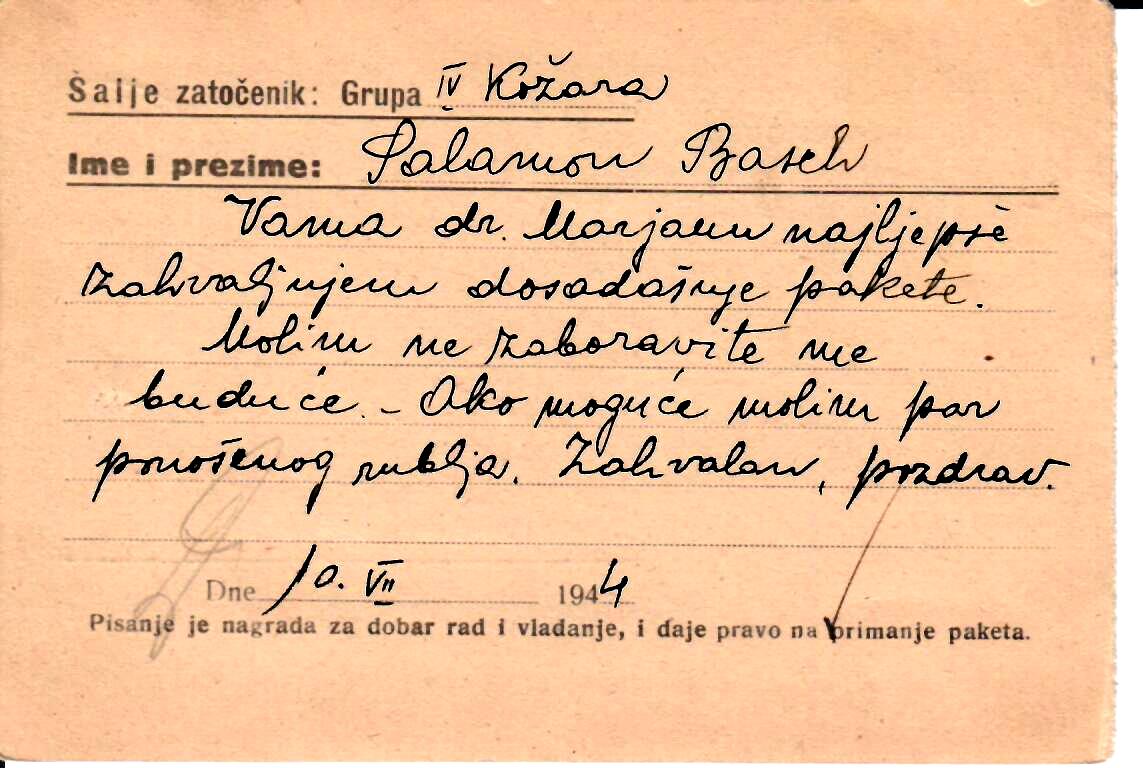 Šalje zatočenik: Grupa IV Kožara
Ime i prezime: Salamon Basch
Vama dr. Marjanu najljepše
zahvaljujem dosadašnje pakete.
Molim ne zaboravite me
buduće. - Ako moguće molim par
ponošenog rublja. Zahvalan, pozdrav.
Dne 10. VII 1944
Pisanje je nagrada za dobar rad i vladanje, i daje pravo na primanje paketa.